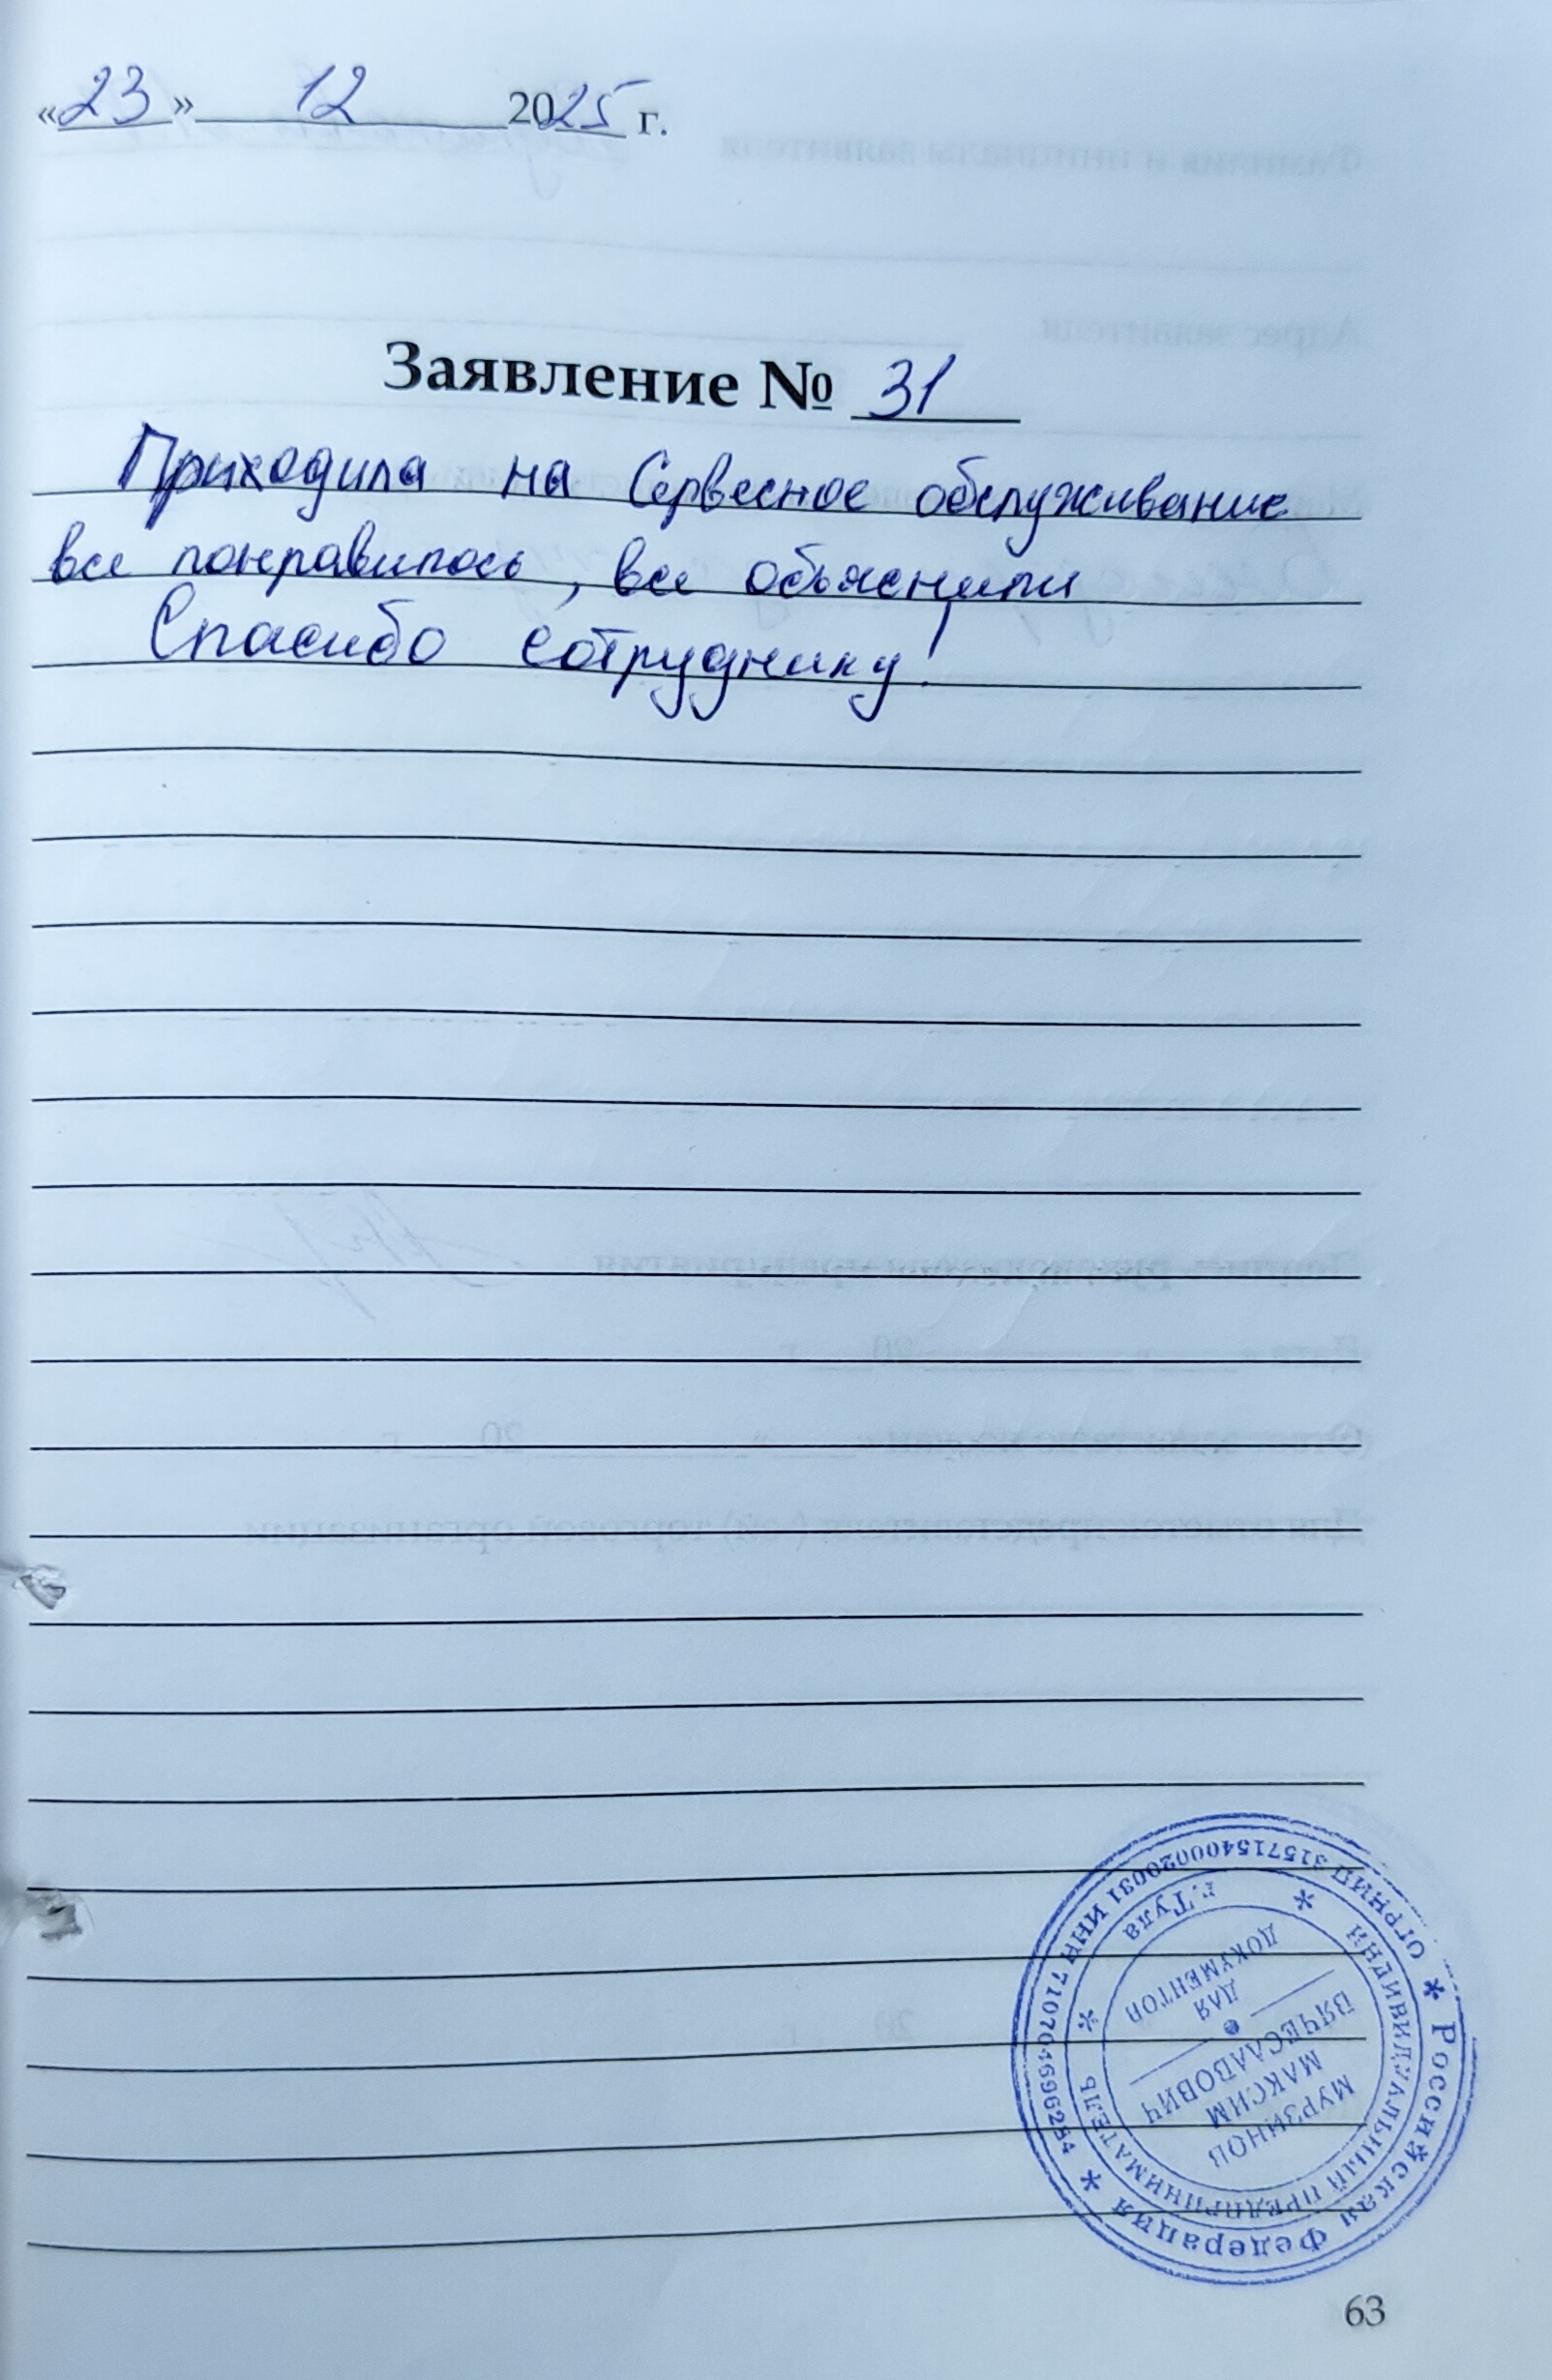 «23» 12 2025 г.
Заявление № 31
Приходила на Сервесное обслуживание
все понравилось, все объяснили
Спасибо сотруднику!
* Российская Федерация *
ОГРНИП 315715400020031 ИНН 710704696284
ИНДИВИДУАЛЬНЫЙ ПРЕДПРИНИМАТЕЛЬ
* г. Тула *
МУРЗИНОВ
МАКСИМ
ВЯЧЕСЛАВОВИЧ
ДЛЯ
ДОКУМЕНТОВ
63